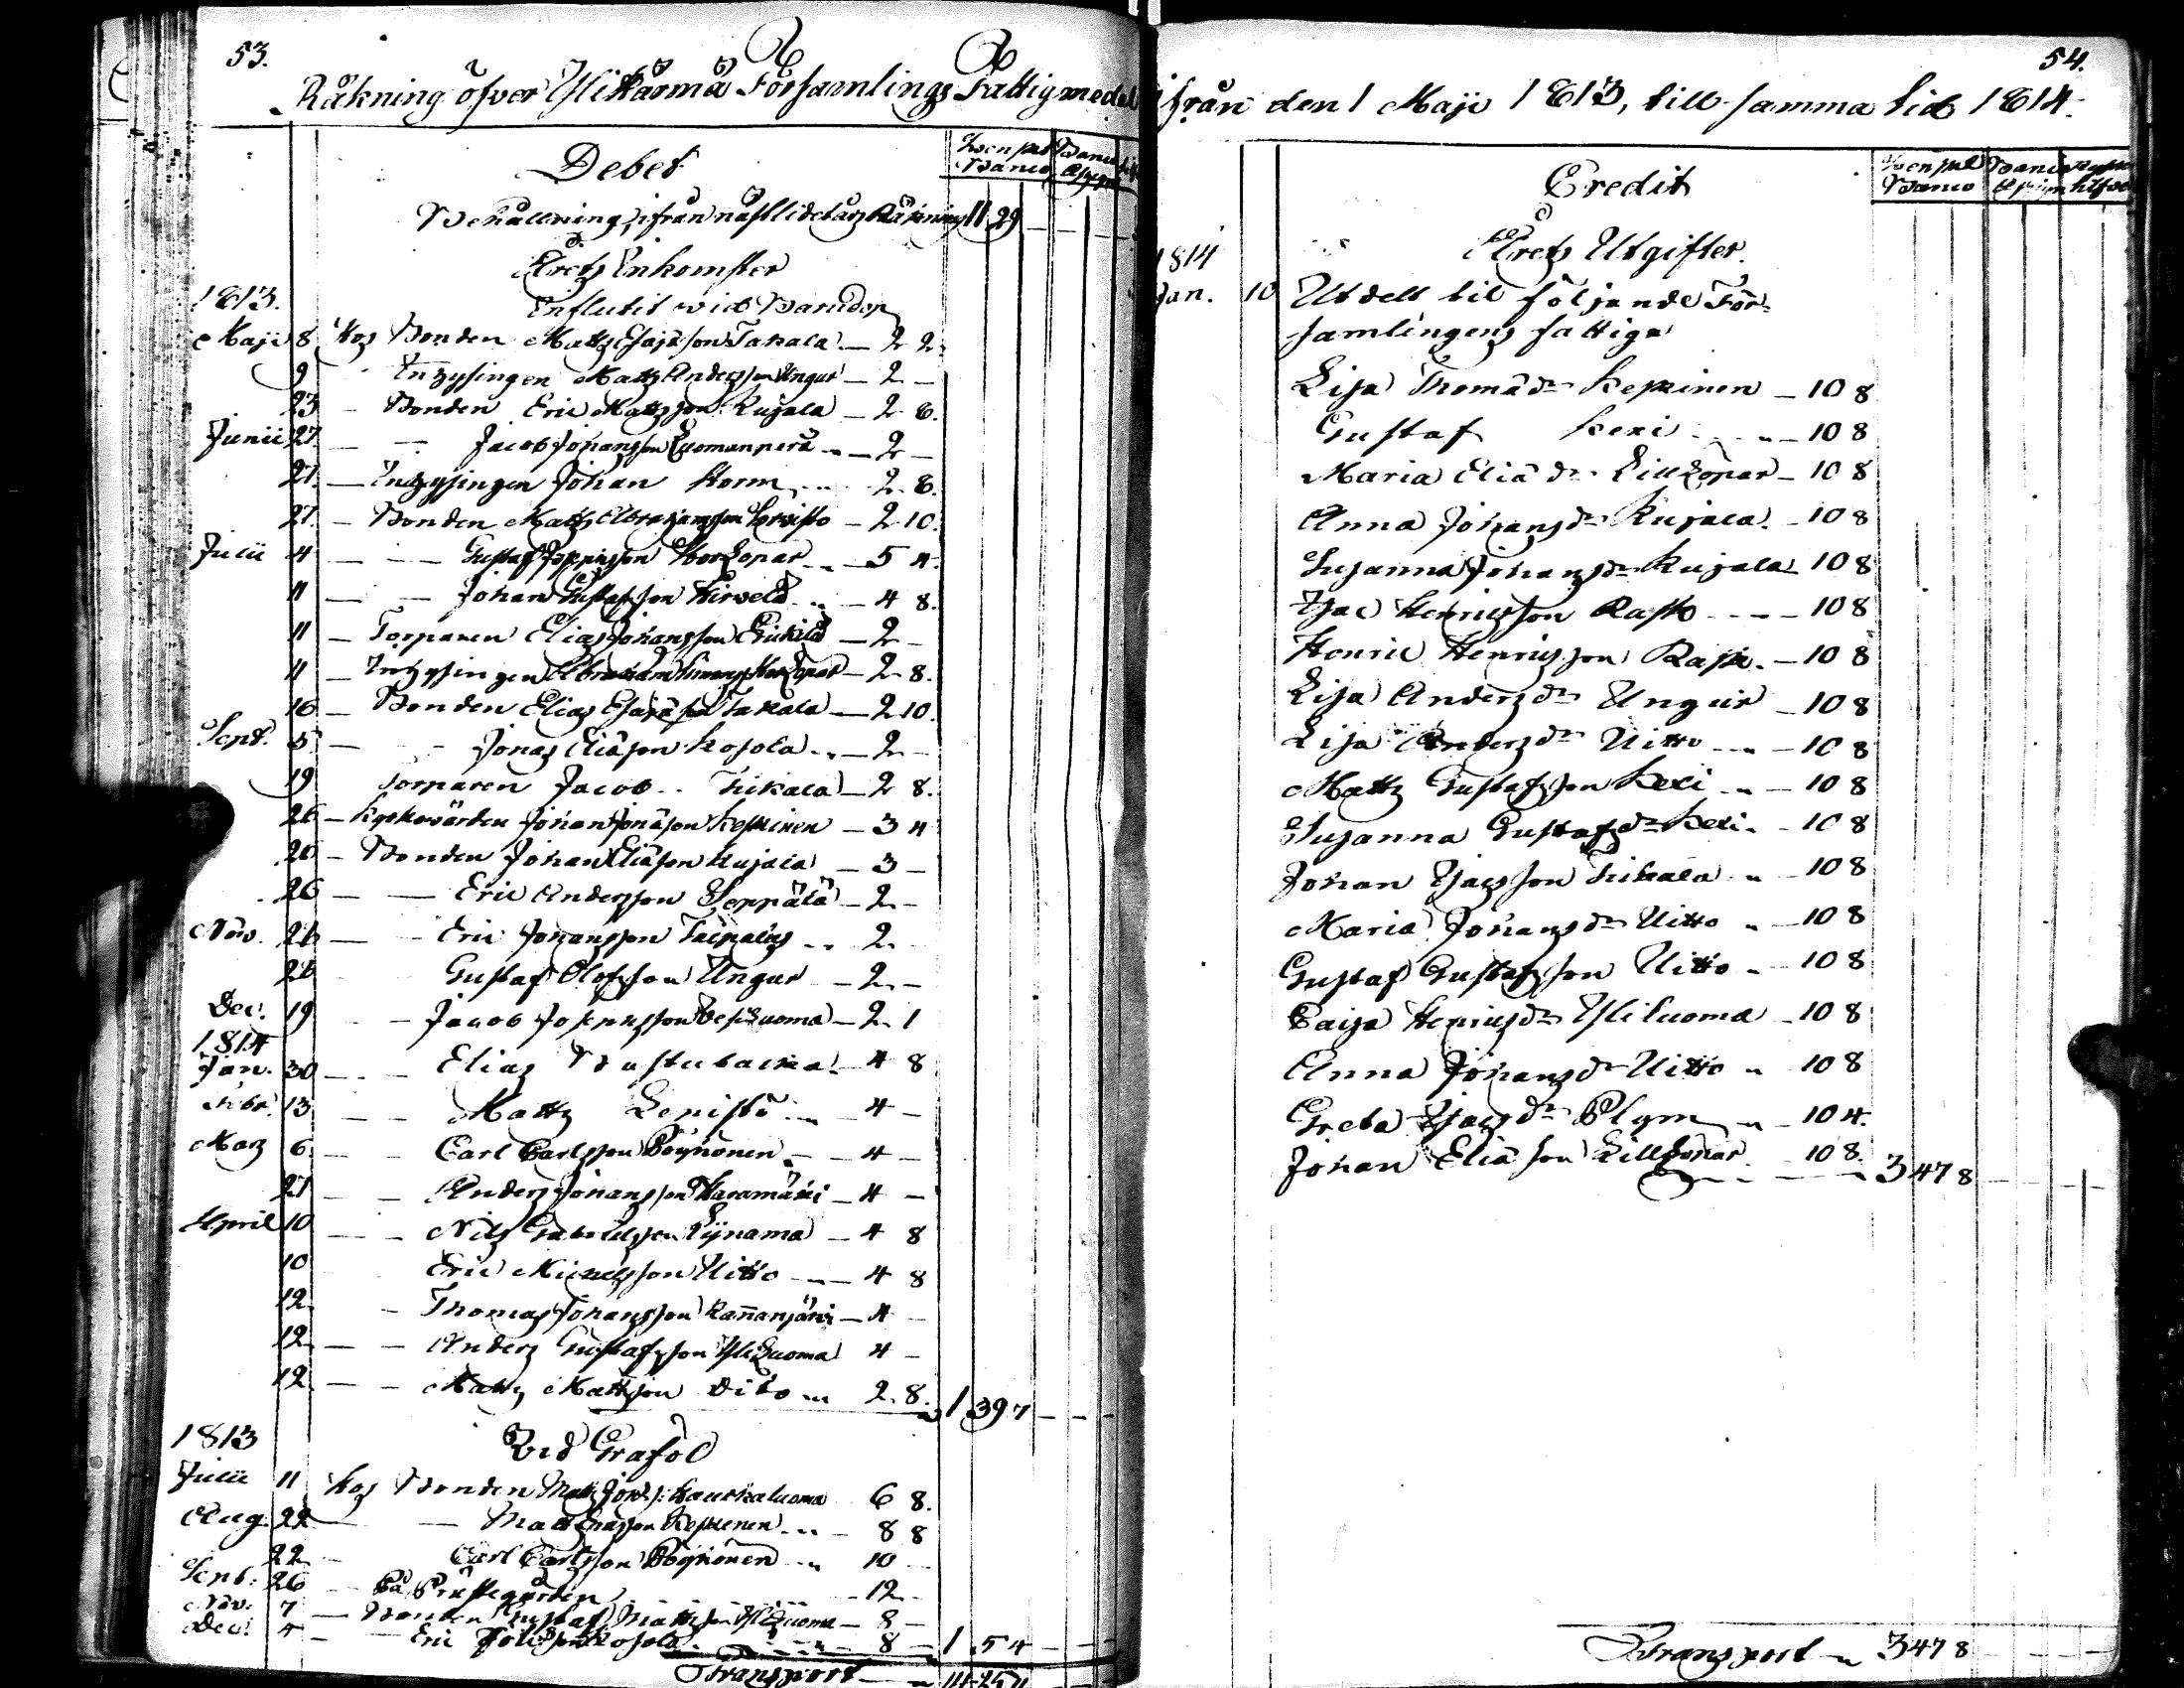 53.
Räkning öfver Ylihärmä Församlings Fattigmedel
Debet
Svenskt Banco
Behållning ifrån nästlidet års Räkning 11 29 — —
Årets Inkomster
1813.
Influtit vid Barndop
Maji 8 Hos Bonden Matts Esajæson Takala — 2 2.
9 Inhysingen Matts Andersson Ungur — 2 —
23 — Bonden Eric Mattsson Kujala — 2 8.
Junii 27. — — Jacob Johansson Luomanperä — 2 —
27. — Inhysingen Johan Storm — 2 8.
27. — Bonden Matts Abrahamsson — 2 10.
Julii 4 — — Gustaf Josephsson — 5 4.
11 — — Johan Gustafsson Hirvelä — 4 8.
11 — Torparen Elias Johansson — 2 —
11 — Inhysingen Abraham — 2 8.
16 — Bonden Elias Esajæson Takala — 2 10.
Sept. 5 — — Jonas Eliæson Kosola — 2 —
19 Torparen Jacob Tikala — 2 8.
26 — Kyrkovärden Johan Jonæson Keskinen — 3 4
26 — Bonden Johan Eliæson Kujala — 3 —
26 — — Eric Andersson Seppälä — 2 —
Nov. 21 — — Eric Johansson Taipalus — 2
28 Gustaf Olofsson Ungur — 2 —
Dec. 19 — Jacob Josephsson Vesiluoma — 2 1
1814
Jan. 30 — — Elias Bustubacka — 4 8
Febr. 13 — — Matts Lepistö — 4 —
Mars 6. — — Carl Carlsson Pöyhönen — 4 —
27 — — Anders Johansson Haramäki — 4 —
April 10 — — Nils Gabrielsson Lijnama — 4 8
10 Eric Michelsson Uitto — 4 8
12. — Thomas Johansson Kannanjärvi — 4 —
12 — — Anders Gustafsson Yliluoma 4 —
12 — — Matts Mattsson Dito 2 8. 1 39 7 — — —
1813
Vid Graföl
Julii 11 Hos Bonden Matts Joh.s: Kauhaluoma 6 8.
Aug. 22 — — Matts Keskinen — 8 8
22 — Carl Carlsson Pöyhönen 10 —
Sept: 26 — På Prästegården — 12 —
Nov: 7 — Bonden Gustaf Mattsson Yliluoma — 8 —
Dec. 4 — — Eric Kosola — 8 — 1 5 4 — — —
Transport — 14 25 11
54.
ifrån den 1 Maji 1813, till samma tid 1814.
Credit
Svenskt Banco
Årets Utgifter.
1814
Jan. 10 Utdelt til följande För-
samlingens fattiga
Lisa Thomæ dr Keskinen — 10 8
Gustaf Kexi — 10 8
Maria Eliæ dr Lillkopar — 10 8
Anna Johans dr Kujala — 10 8
Susanna Johans dr Kujala — 10 8
Isac Henricsson Rasko — 10 8
Henric Henricsson — 10 8
Lisa Anders dr Ungur — 10 8
Lisa Anders dr Uitto — 10 8
Matts Gustafsson Kexi — 10 8
Susanna Gustafs dr Kexi — 10 8
Johan Isacsson Tikala — 10 8
Maria Johans dr Uitto — 10 8
Gustaf Gustafsson Uitto — 10 8
Caisa Henrics dr Yliluoma — 10 8
Anna Johans dr Uitto 10 8
Greta Isacs dr Plym — 10 4.
Johan Eliæson Lillkopar — 10 8. 3 47 8 — — —
Transport 3 47 8 — — —